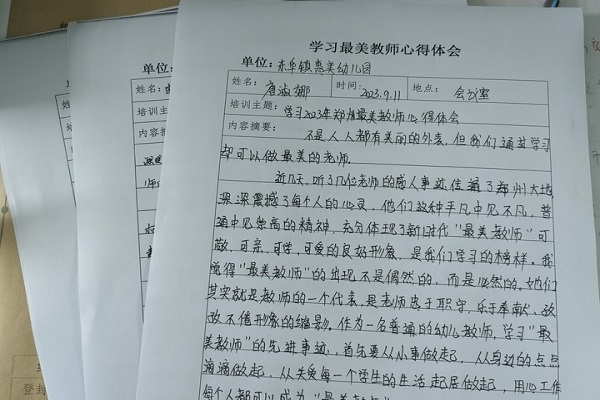 学习最美教师心得体会
单位：东阜镇惠美幼儿园
姓名： 唐淑娜 时间：2023.9.11 地点： 会议室
培训主题： 学习2023年郑州最美教师心得体会
内容摘要： 不是人人都有美丽的外表，但我们通过学习
却可以做最美的老师.
近几天，听了几位老师的感人事迹传遍了郑州大地
深深震撼了每个人的心灵，他们这种平凡中见不凡，普
通中见崇高的精神，充分体现了新时代"最美教师"可
敬，可亲，可学，可爱的良好形象，是我们学习的榜样。我
觉得"最美教师"的出现不是偶然的，而是必然的，她们
其实就是教师的一个代表，是老师忠于职守，乐于奉献，孜
孜不倦形象的缩影。作为一名普通的幼儿教师，学习"最
美教师"的先进事迹，首先要从小事做起，从身边的点点
滴滴做起，从关爱每一个学生的生活起居做起，用心工作
每个人都可以成为"最美教师
单位
姓名
培训
内容
单
姓名：
培训主
内容摘
登封